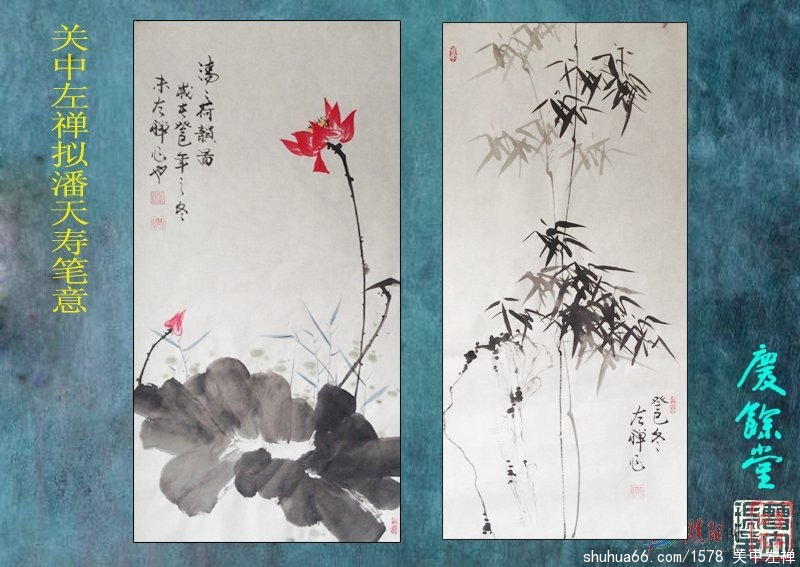 关中左禅拟潘天寿笔意
荷韻图
歲在癸巳年之冬
左禅作也
癸巳冬
左禅作
慶餘堂
shuhua66.com/1578 关中左禅